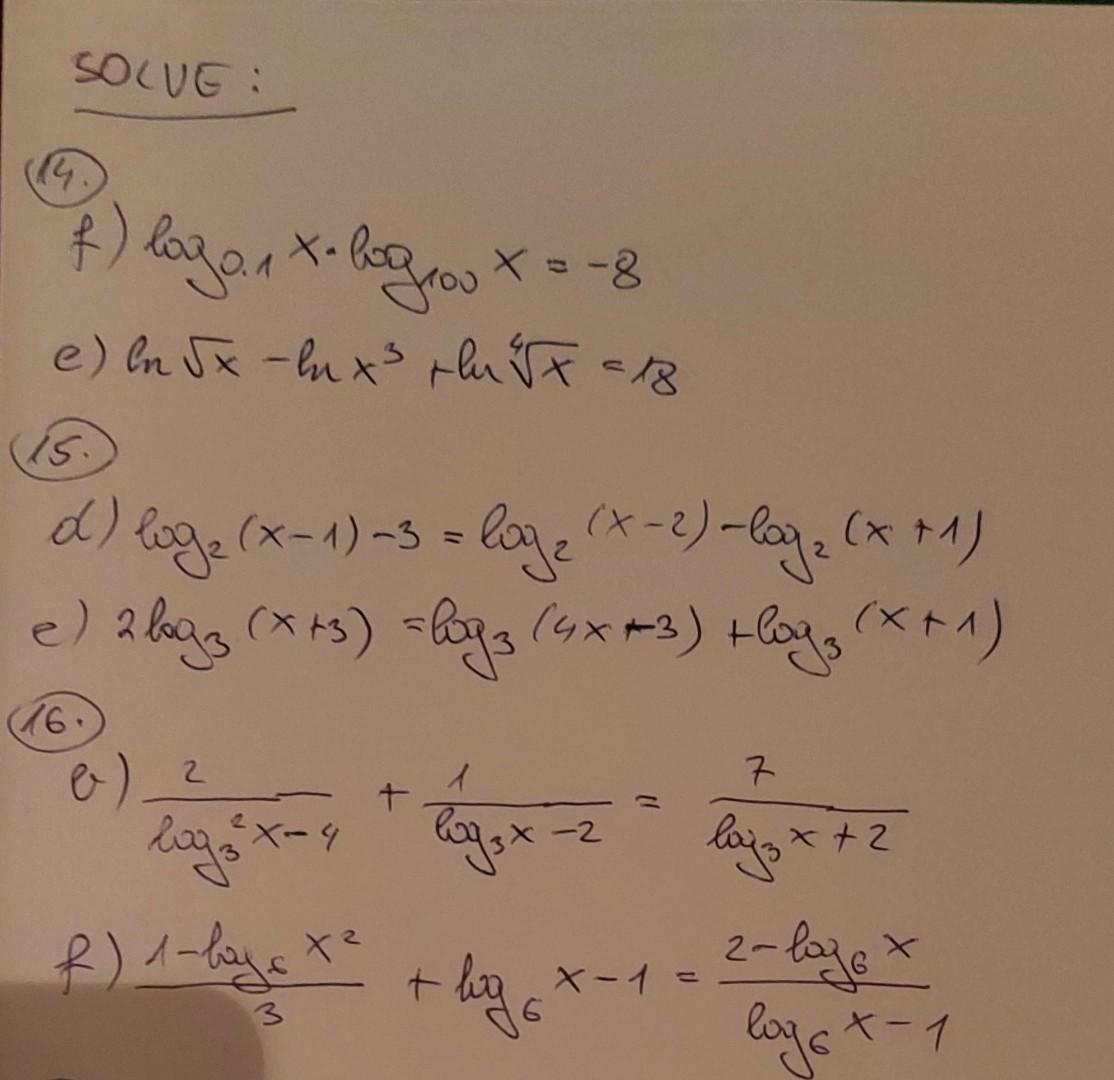 SOLVE:
14.
f) log₀.₁ x · log₁₀₀ x = -8
e) ln √x - ln x³ + ln ⁴√x = 18
15.
d) log₂ (x-1) - 3 = log₂ (x-2) - log₂ (x+1)
e) 2 log₃ (x+3) = log₃ (4x+3) + log₃ (x+1)
16.
e) 2/(log₃² x - 4) + 1/(log₃ x - 2) = 7/(log₃ x + 2)
f) (1 - log₆ x²)/3 + log₆ x - 1 = (2 - log₆ x)/(log₆ x - 1)